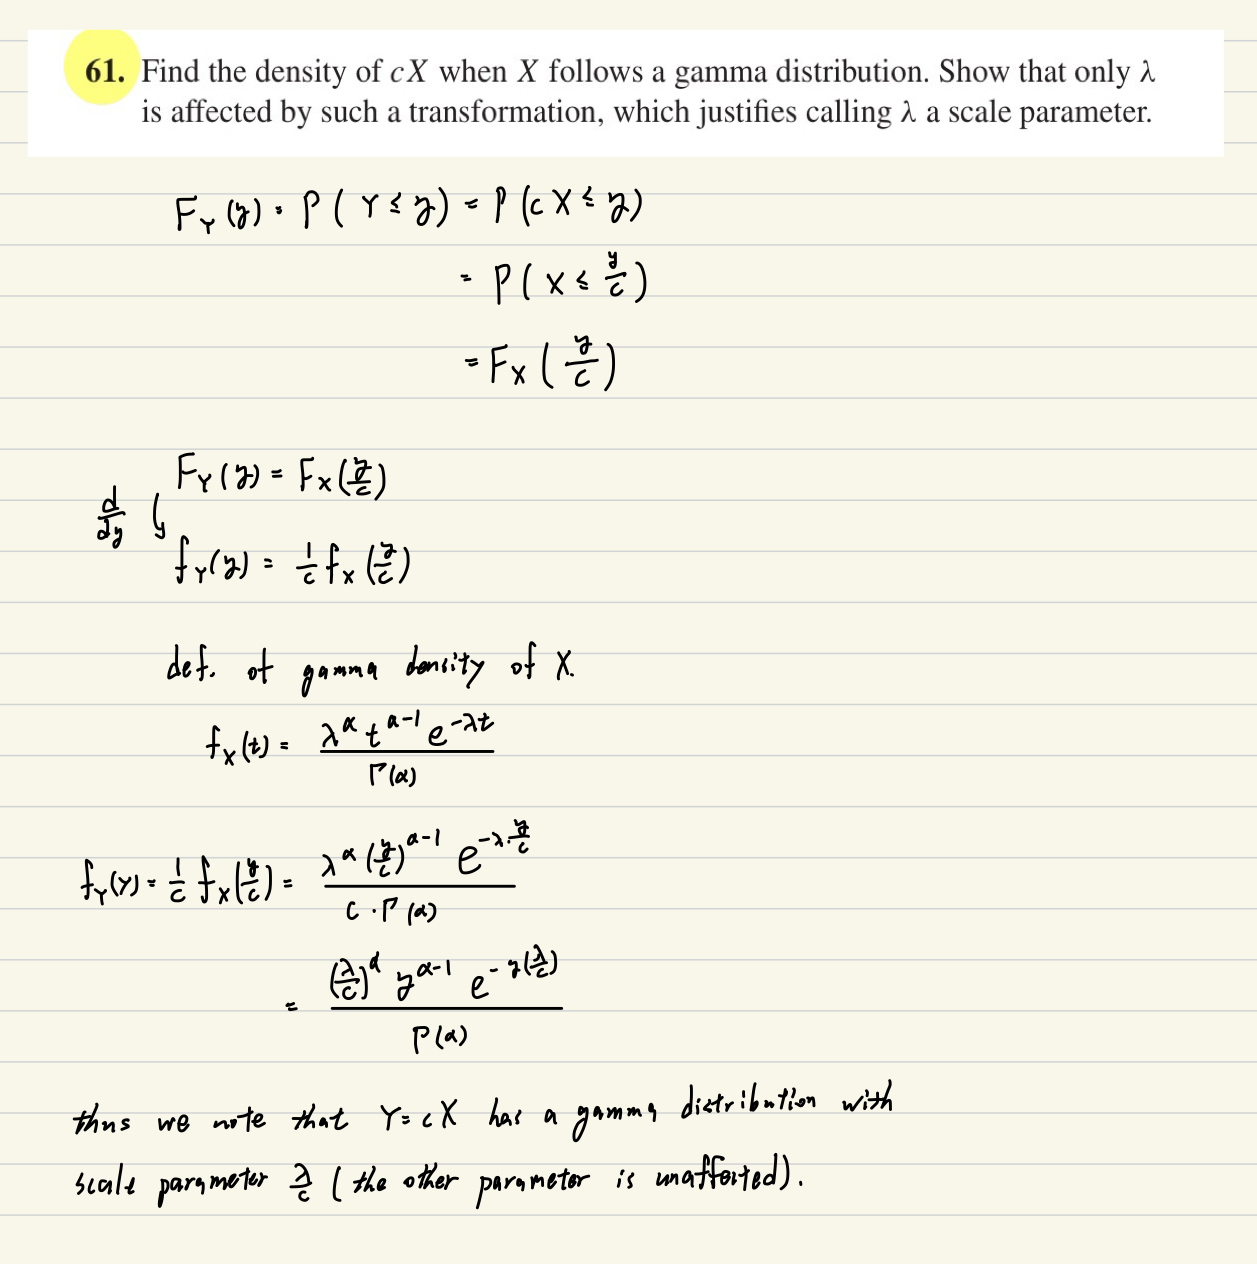 61. Find the density of cX when X follows a gamma distribution. Show that only λ
is affected by such a transformation, which justifies calling λ a scale parameter.
F_Y(y) = P(Y ≤ y) = P(cX ≤ y)
= P(X ≤ y/c)
= F_X(y/c)
F_Y(y) = F_X(y/c)
d/dy
f_Y(y) = 1/c f_X(y/c)
def. of gamma density of X.
f_X(t) = λ^α t^(α-1) e^(-λt) / Γ(α)
f_Y(Y) = 1/c f_X(y/c) = λ^α (y/c)^(α-1) e^(-λ·y/c) / c·Γ(α)
= (λ/c)^α y^(α-1) e^(-y(λ/c)) / Γ(α)
thus we note that Y=cX has a gamma distribution with
scale parameter λ/c (the other parameter is unaffected).